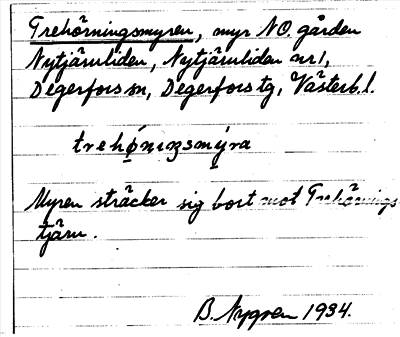 Trehörningsmyren, myr NO. gården
Nytjärnliden, Nytjärnliden nr 1,
Degerfors sn, Degerfors tg, Västerb. l.
trehǿ̣nıŋsmýra
Myren sträcker sig bort mot Trehörnings
tjärn.
B. Nygren 1934.